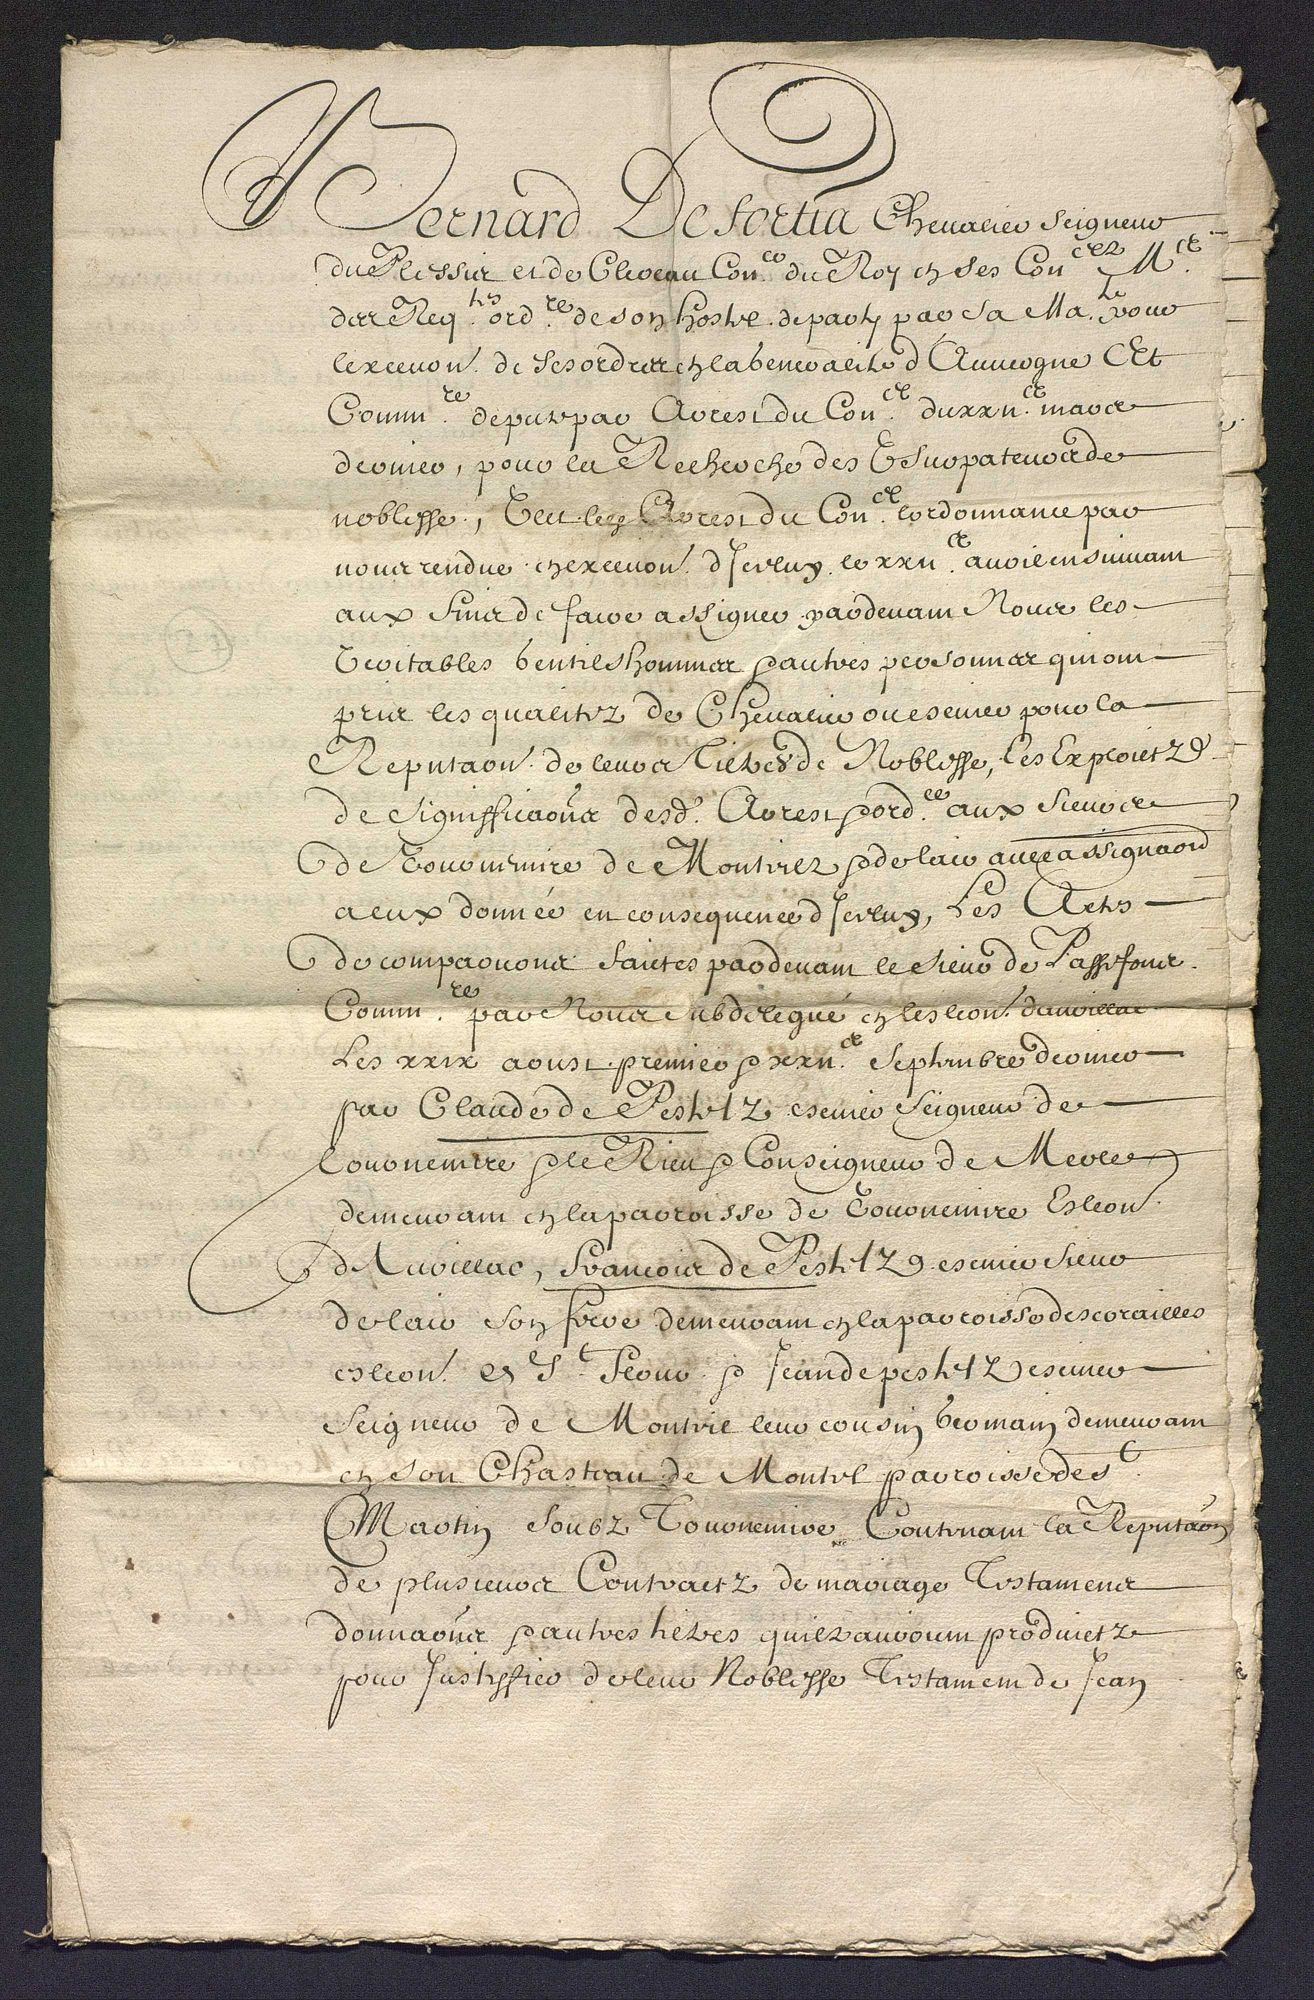 Bernard De fortia Chevalier Seigneur
du Plessis et de Cleveau Con.er du Roy en ses Con.lz M.e
des Req.tes ord.re de son hostel departy par Sa Ma.te pour
lexecuon. de ses ordres en la generalité d'Auvergne Et
Comm.re deputé par Arrest du Con.el du xxii.e mars
dernier, pour la Recherche des Usurpateurs de
noblesse, Veu led Arrest du Con.el lordonnance par
nous rendue en execuon. d'Icelluy le xxii.e avril ensuivant
aux fins de faire assigner pardevant Nous les
Veritables Gentilshommes & autres personnes qui ont
pris les qualitez de Chevalier ou escuier pour la
Reputaon. de leurs Tiltres de Noblesse, Les Exploictz
de Signifficaons desd. Arrest & ord.ce aux Sieurs
de Tournemire de Montrel & de lair avec assignaon
a eux donnée en consequence d'Icelluy, Les Actes
de comparuons faictes pardevant le Sieur de Passefons
Comm.re par Nous Subdelegué en leslon. daurillac
Les xxix aoust premier & xxii.e Septembre dernier
par Claude de Pestelz escuier Seigneur de
tournemire & le Rieu & Conseigneur de Merle
demeurant en la parroisse de Tournemire Eslon.
d'Aurillac, francois de Pestelz escuier Sieur
de lair son frere demeurant en la parroisse descorailles
eslon. de S.t flour & Jean de pestelz escuier
Seigneur de Montrel leur cousin germain demeurant
en son Chasteau de Montel parroisse de S.t
Martin soubz Tournemire Contenant la Reputaon
de plusieurs Contractz de mariage Testamens
donnaons & autres tiltres quilz auroient produictz
pour Justiffier de leur Noblesse Testament de Jean